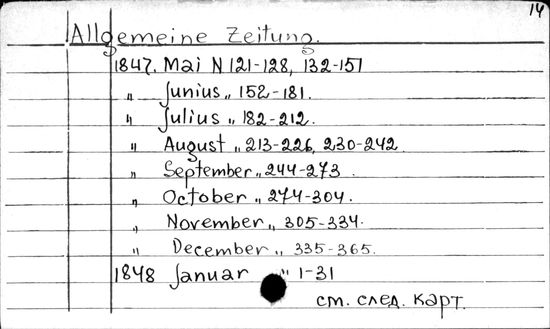 14
Allgemeine Zeitung.
1847. Mai N 121-128, 132-151
„ Junius „ 152-181.
„ Julius „ 182-212.
„ August „ 213-226, 230-242
„ September „ 244-273
„ October „ 274-304.
„ November „ 305-334.
„ December „ 335-365.
1848 Januar „ 1-31
см. след. карт.